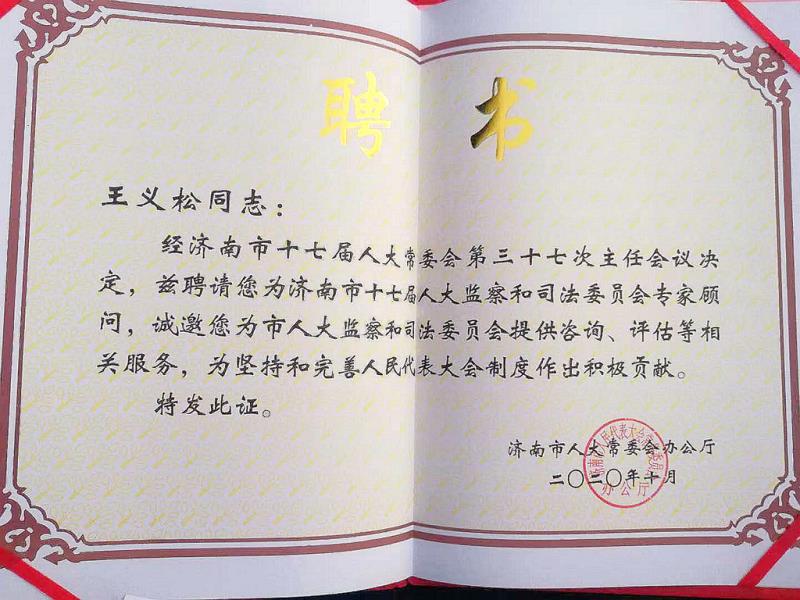 聘书
王义松同志：
经济南市十七届人大常委会第三十七次主任会议决
定，兹聘请您为济南市十七届人大监察和司法委员会专家顾
问，诚邀您为市人大监察和司法委员会提供咨询、评估等相
关服务，为坚持和完善人民代表大会制度作出积极贡献。
特发此证。
济南市人大常委会办公厅
二〇二〇年十月
济南市人民代表大会常务委员会
办公厅